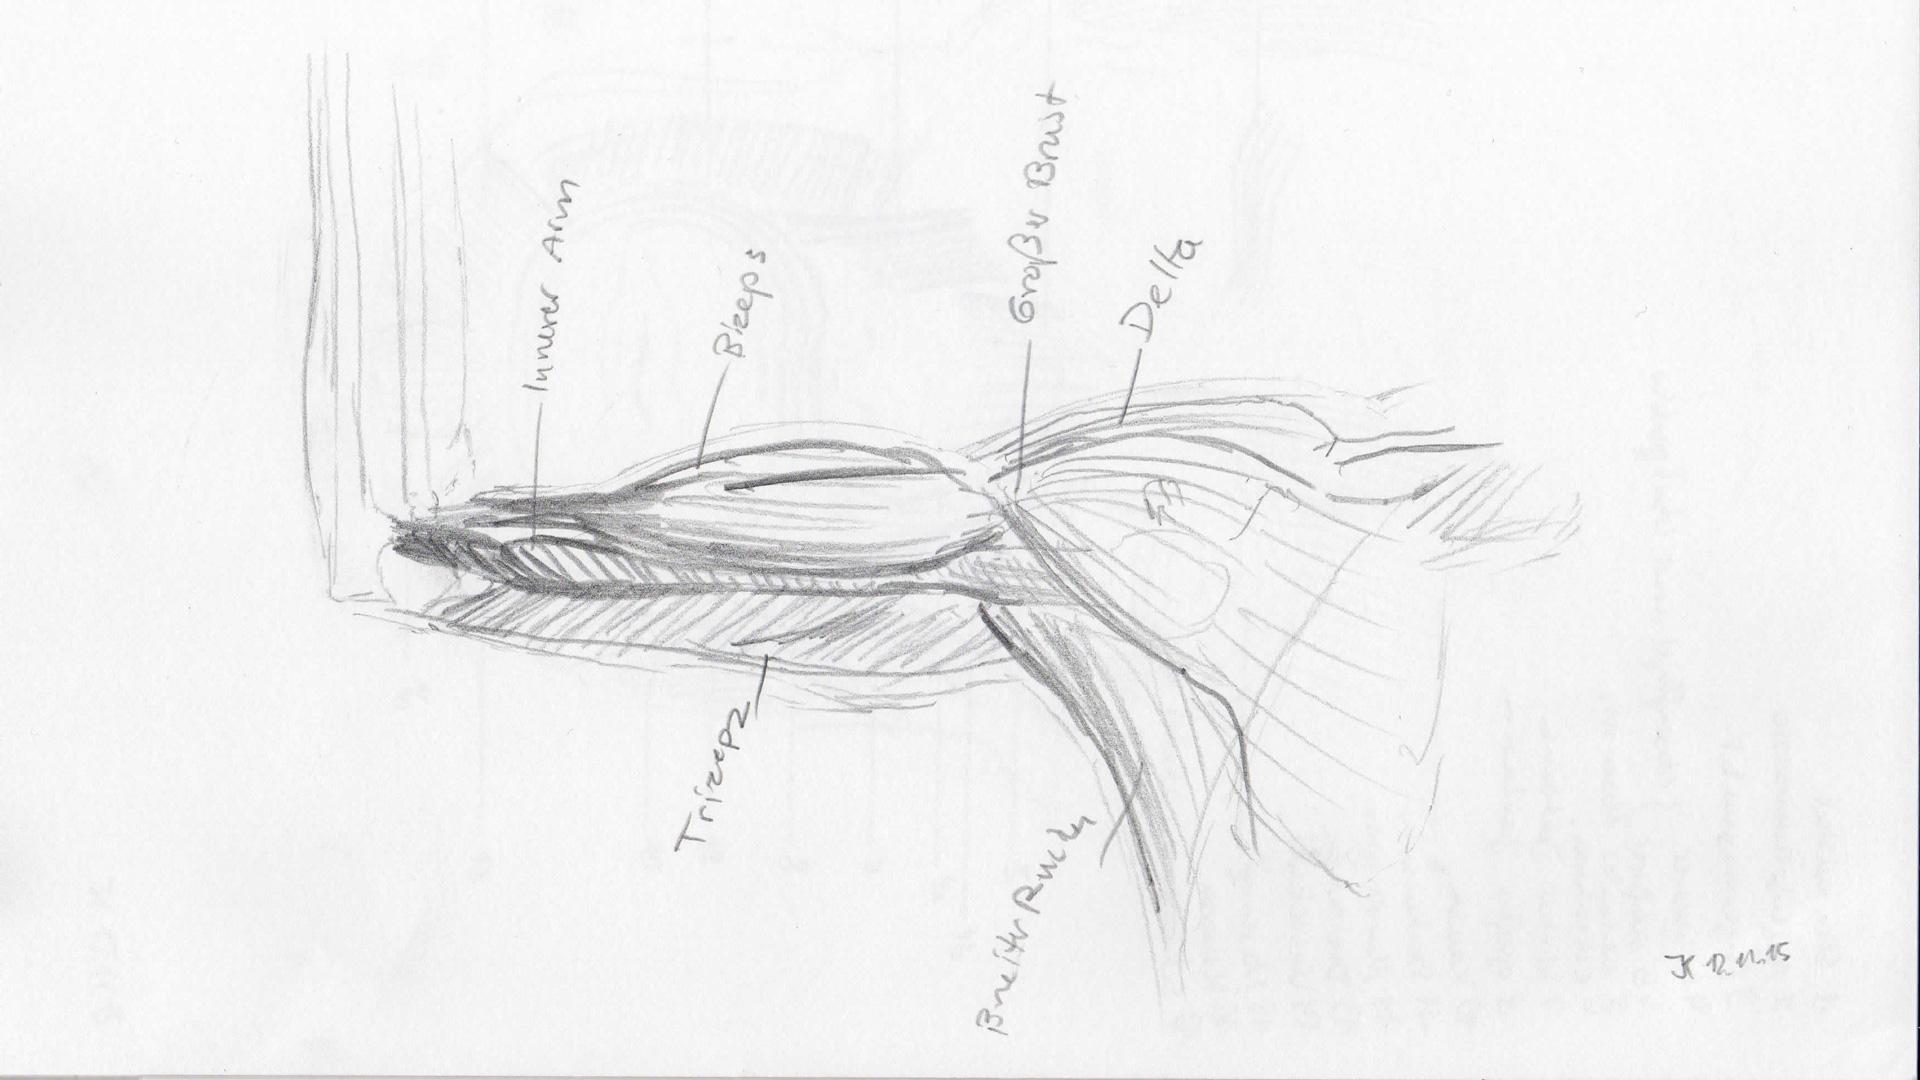 Innerer Arm
Bizeps
Großer Brust
Delta
Trizeps
Breiter Rück
JK 12.11.15